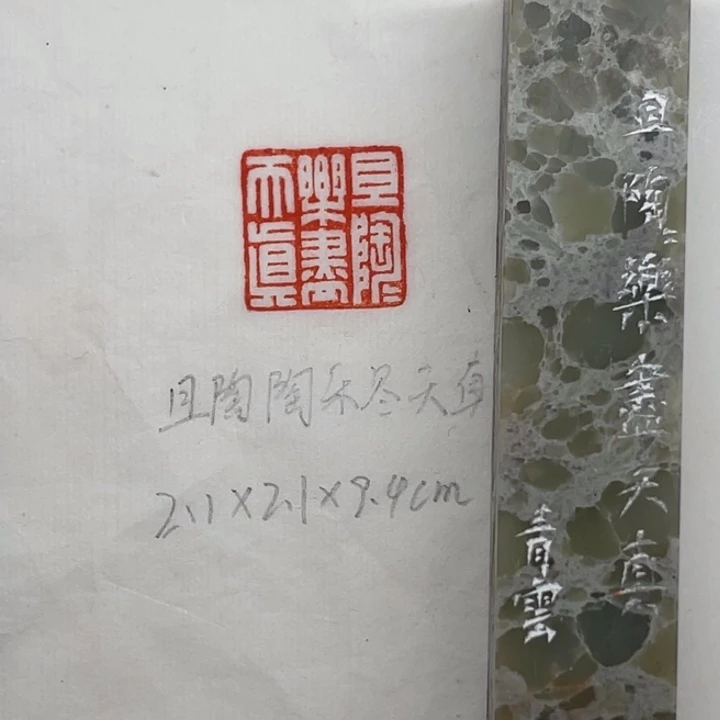 且陶
樂盡
天真
且陶陶乐尽天真
2.1×2.1×9.4cm
且陶〻樂盡天真
青雲